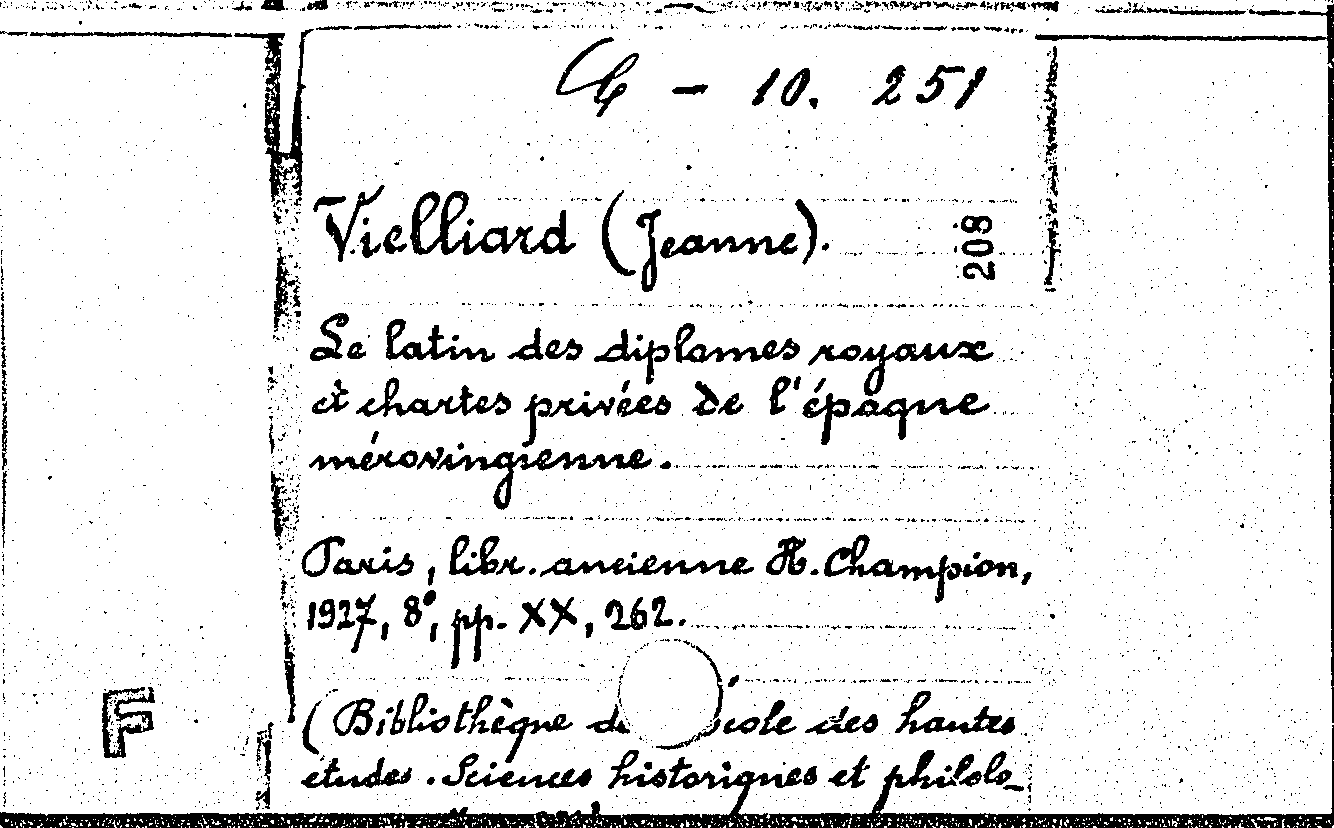 - 10. 251
Vielliard (Jeanne).
208
Le latin des diplomes royaux
et chartes privées de l'épaque
mérovingienne.
Paris, libr. ancienne H. Champion,
1927, 8°, pp. XX, 262.
(Bibliothèque des hautes
etudes. Sciences historiques et philolo-
F